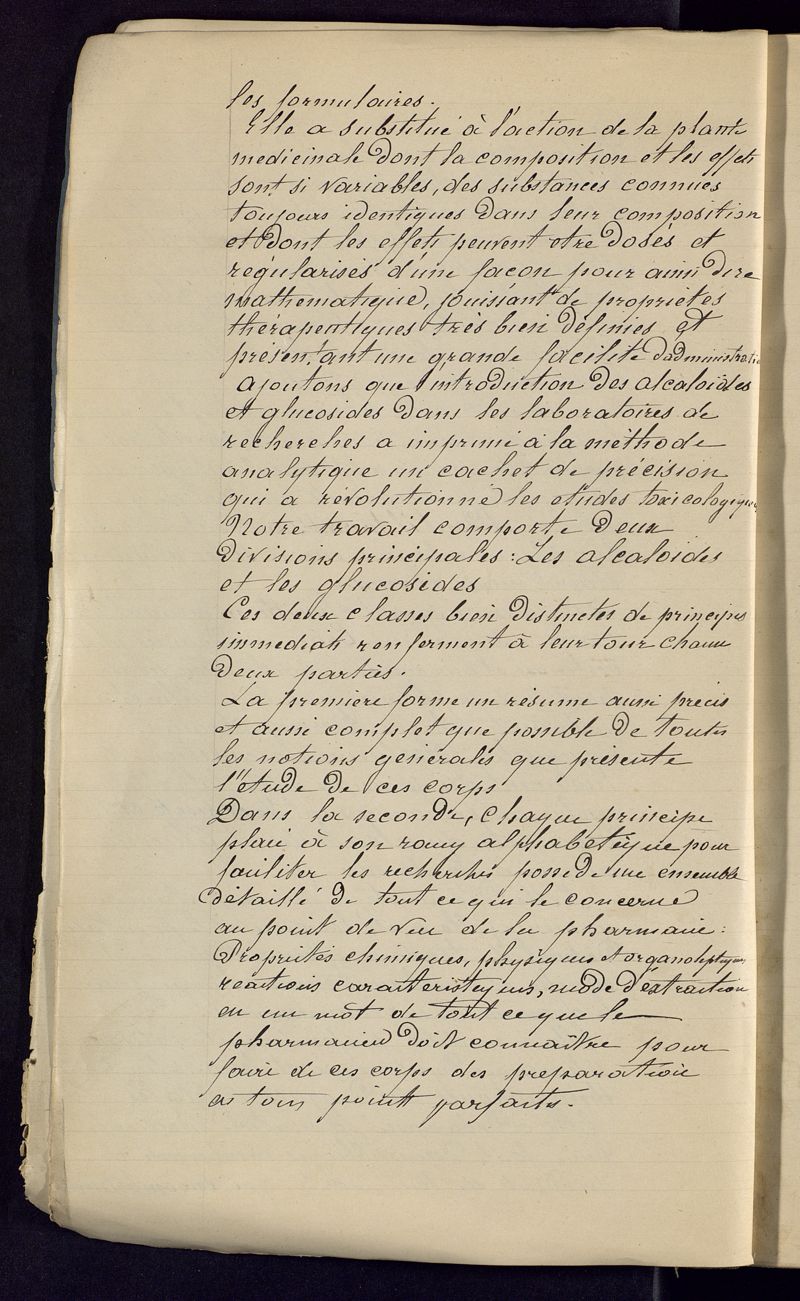 les formulaires.
Elle a substitué à l'action de la plante
medicinale dont la composition et les effets
sont si variables, des substances connues
toujours identiques dans leur composition
et dont les effets peuvent etre dosés et
régularisés d'une façon pour ainsi dire
mathematique, jouissant de propriétés
thérapeutiques très bien définies et
présentant une grande facilité d'administration
Ajoutons que l'introduction des alcaloïdes
et glucosides dans les laboratoires de
recherches a imprimé à la méthode
analytique un cachet de précision
qui a révolutionné les etudes toxicologiques
Notre travail comporte deux
divisions principales : Les alcaloides
et les glucosides
Ces deux classes bien distinctes de principes
immediats renferment à leur tour chacune
deux parties.
La premiere forme un résume aussi précis
et aussi complet que possible de toutes
les notions générales que présente
l'étude de ces corps
Dans la seconde, chaque principe
placé à son rang alphabétique pour
faciliter les recherches possede une ensemble
détaillé de tout ce qui le concerne
au point de vue de la pharmacie :
Propriétés chimiques, physiques et organoleptiques
réactions caracteristiques, mode d'extraction
en un mot de tout ce que le
pharmacien doit connaître pour
faire de ces corps des préparation
en tous points parfaites.